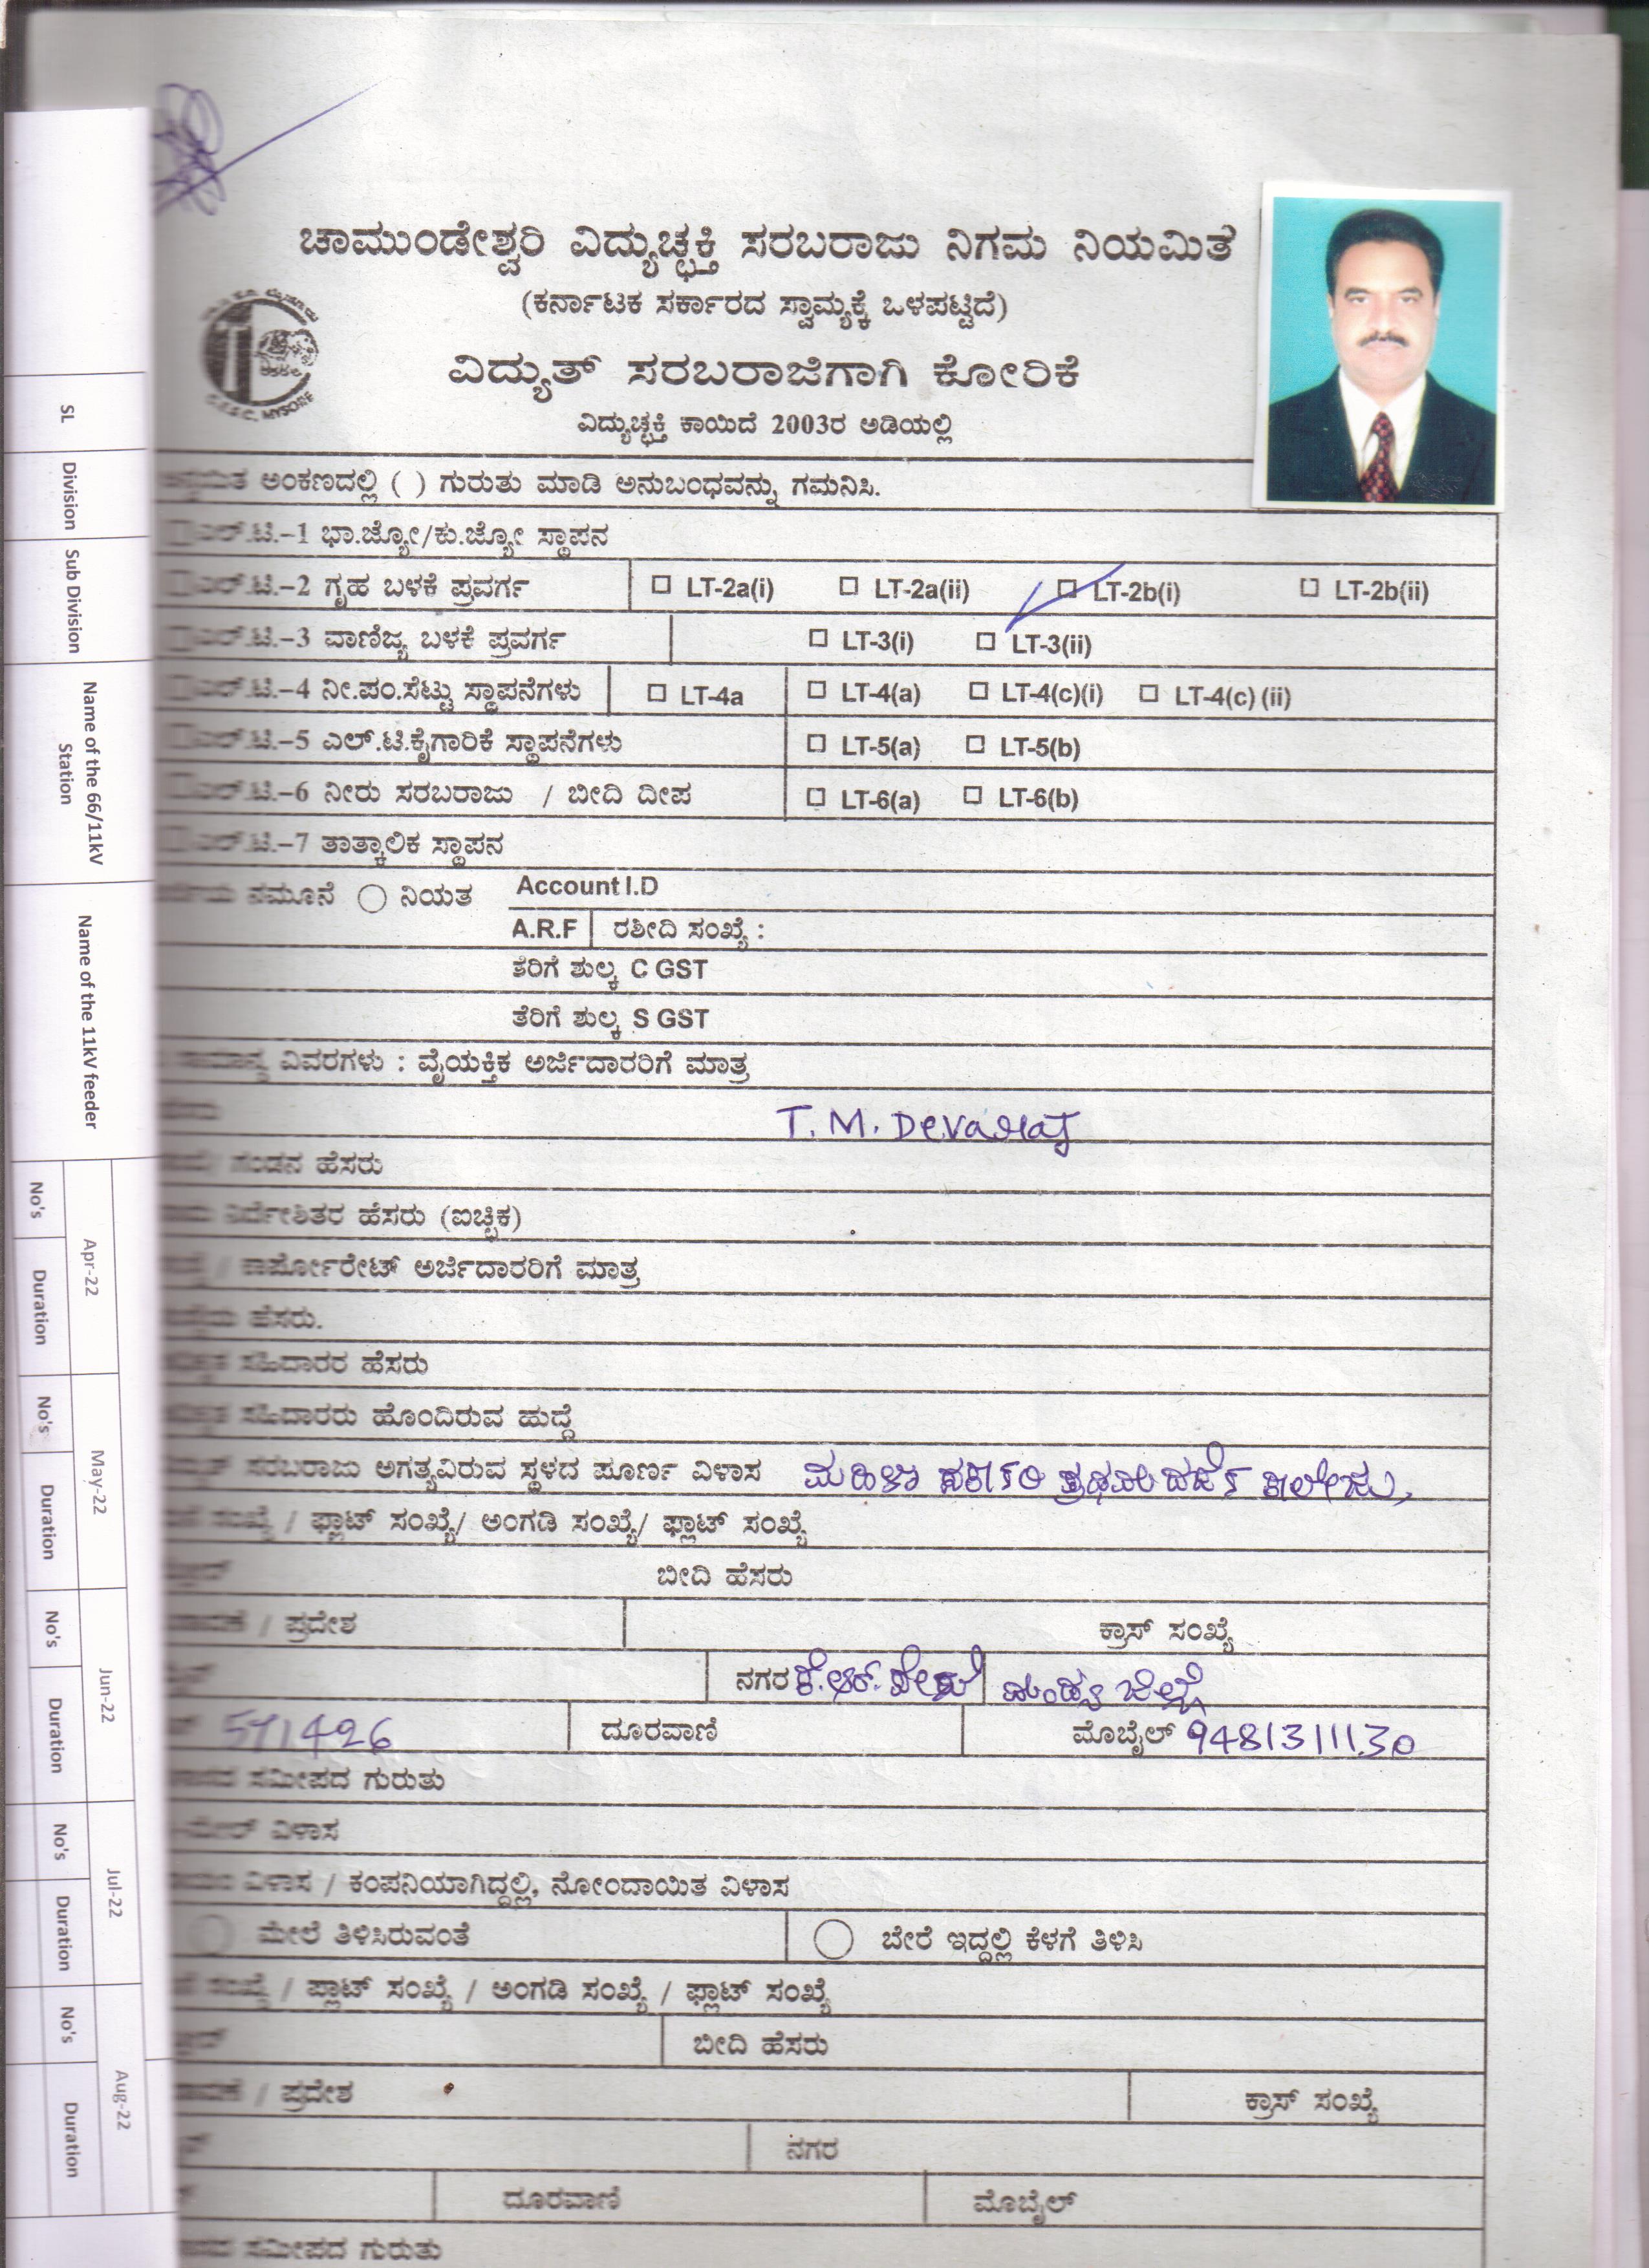 ಚಾಮುಂಡೇಶ್ವರಿ ವಿದ್ಯುಚ್ಛಕ್ತಿ ಸರಬರಾಜು ನಿಗಮ ನಿಯಮಿತ
(ಕರ್ನಾಟಕ ಸರ್ಕಾರದ ಸ್ವಾಮ್ಯಕ್ಕೆ ಒಳಪಟ್ಟಿದೆ)
ವಿದ್ಯುತ್ ಸರಬರಾಜಿಗಾಗಿ ಕೋರಿಕೆ
ವಿದ್ಯುಚ್ಛಕ್ತಿ ಕಾಯಿದೆ 2003ರ ಅಡಿಯಲ್ಲಿ
MYSORE
ಅಂಕಣದಲ್ಲಿ ( ) ಗುರುತು ಮಾಡಿ ಅನುಬಂಧವನ್ನು ಗಮನಿಸಿ.
ಎಲ್.ಟಿ.-1 ಭಾ.ಜ್ಯೋ/ಕು.ಜ್ಯೋ ಸ್ಥಾಪನ
ಎಲ್.ಟಿ.-2 ಗೃಹ ಬಳಕೆ ಪ್ರವರ್ಗ LT-2a(i) LT-2a(ii) LT-2b(i) LT-2b(ii)
ಎಲ್.ಟಿ.-3 ವಾಣಿಜ್ಯ ಬಳಕೆ ಪ್ರವರ್ಗ LT-3(i) LT-3(ii)
ಎಲ್.ಟಿ.-4 ನೀ.ಪಂ.ಸೆಟ್ಟು ಸ್ಥಾಪನೆಗಳು LT-4a LT-4(a) LT-4(c)(i) LT-4(c) (ii)
ಎಲ್.ಟಿ.-5 ಎಲ್.ಟಿ.ಕೈಗಾರಿಕೆ ಸ್ಥಾಪನೆಗಳು LT-5(a) LT-5(b)
ಎಲ್.ಟಿ.-6 ನೀರು ಸರಬರಾಜು / ಬೀದಿ ದೀಪ LT-6(a) LT-6(b)
ಎಲ್.ಟಿ.-7 ತಾತ್ಕಾಲಿಕ ಸ್ಥಾಪನ
ನಮೂನೆ ನಿಯತ Account I.D
A.R.F ರಶೀದಿ ಸಂಖ್ಯೆ :
ತೆರಿಗೆ ಶುಲ್ಕ C GST
ತೆರಿಗೆ ಶುಲ್ಕ S GST
ವಿವರಗಳು : ವೈಯಕ್ತಿಕ ಅರ್ಜಿದಾರರಿಗೆ ಮಾತ್ರ
T. M. Devaraj
ಗಂಡನ ಹೆಸರು
ನಿರ್ದೇಶಿತರ ಹೆಸರು (ಐಚ್ಛಿಕ)
/ ಕಾರ್ಪೋರೇಟ್ ಅರ್ಜಿದಾರರಿಗೆ ಮಾತ್ರ
ಹೆಸರು.
ಸಹಿದಾರರ ಹೆಸರು
ಸಹಿದಾರರು ಹೊಂದಿರುವ ಹುದ್ದೆ
ಸರಬರಾಜು ಅಗತ್ಯವಿರುವ ಸ್ಥಳದ ಪೂರ್ಣ ವಿಳಾಸ ಮಹಿಳಾ ಸರ್ಕಾರಿ ಪ್ರಥಮ ದರ್ಜೆ ಕಾಲೇಜು,
ಸಂಖ್ಯೆ / ಫ್ಲಾಟ್ ಸಂಖ್ಯೆ/ ಅಂಗಡಿ ಸಂಖ್ಯೆ/ ಫ್ಲಾಟ್ ಸಂಖ್ಯೆ
ಬೀದಿ ಹೆಸರು
/ ಪ್ರದೇಶ ಕ್ರಾಸ್ ಸಂಖ್ಯೆ
ನಗರ ಕೆ.ಆರ್.ಪೇಟೆ ಮಂಡ್ಯ ಜಿಲ್ಲೆ
571426 ದೂರವಾಣಿ ಮೊಬೈಲ್ 9481311130
ಸಮೀಪದ ಗುರುತು
ವಿಳಾಸ
ವಿಳಾಸ / ಕಂಪನಿಯಾಗಿದ್ದಲ್ಲಿ, ನೋಂದಾಯಿತ ವಿಳಾಸ
ಮೇಲೆ ತಿಳಿಸಿರುವಂತೆ ಬೇರೆ ಇದ್ದಲ್ಲಿ ಕೆಳಗೆ ತಿಳಿಸಿ
ಸಂಖ್ಯೆ / ಫ್ಲಾಟ್ ಸಂಖ್ಯೆ / ಅಂಗಡಿ ಸಂಖ್ಯೆ / ಫ್ಲಾಟ್ ಸಂಖ್ಯೆ
ಬೀದಿ ಹೆಸರು
/ ಪ್ರದೇಶ ಕ್ರಾಸ್ ಸಂಖ್ಯೆ
ನಗರ
ದೂರವಾಣಿ ಮೊಬೈಲ್
ಸಮೀಪದ ಗುರುತು
SL
Division
Sub Division
Name of the 66/11kV
Station
Name of the 11kV feeder
Apr-22
No's
Duration
May-22
No's
Duration
Jun-22
No's
Duration
Jul-22
No's
Duration
Aug-22
No's
Duration